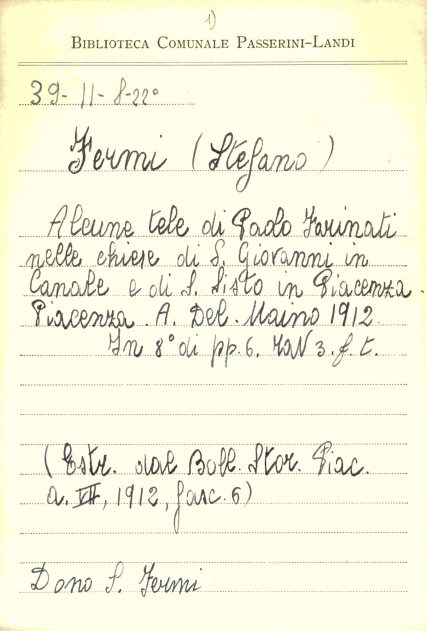 1)
BIBLIOTECA COMUNALE PASSERINI-LANDI
39-11-8-22°
Fermi (Stefano)
Alcune tele di Paolo Farinati
nelle chiese di S. Giovanni in
Canale e di S. Sisto in Piacenza.
Piacenza. A. Del. Maino 1912
In 8° di pp. 6. 3. f. t.
(Estr. dal Boll. Stor. Piac.
a. VII, 1912, fasc. 6)
Dono S. Fermi